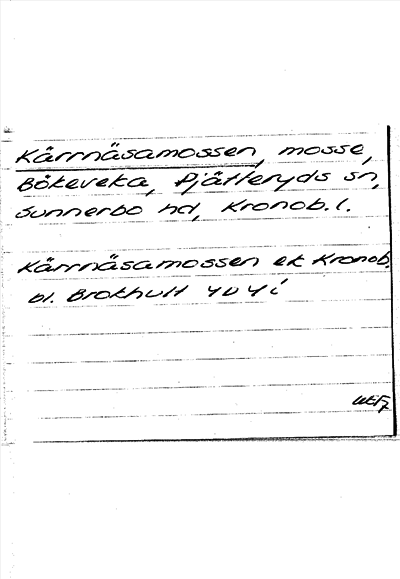 Kärrnäsamossen, mosse,
Bökeveka, Pjätteryds sn,
Sunnerbo hd, Kronob. l.
Kärrnäsamossen ek Kronob.
bl. Brokhult 4D 4i